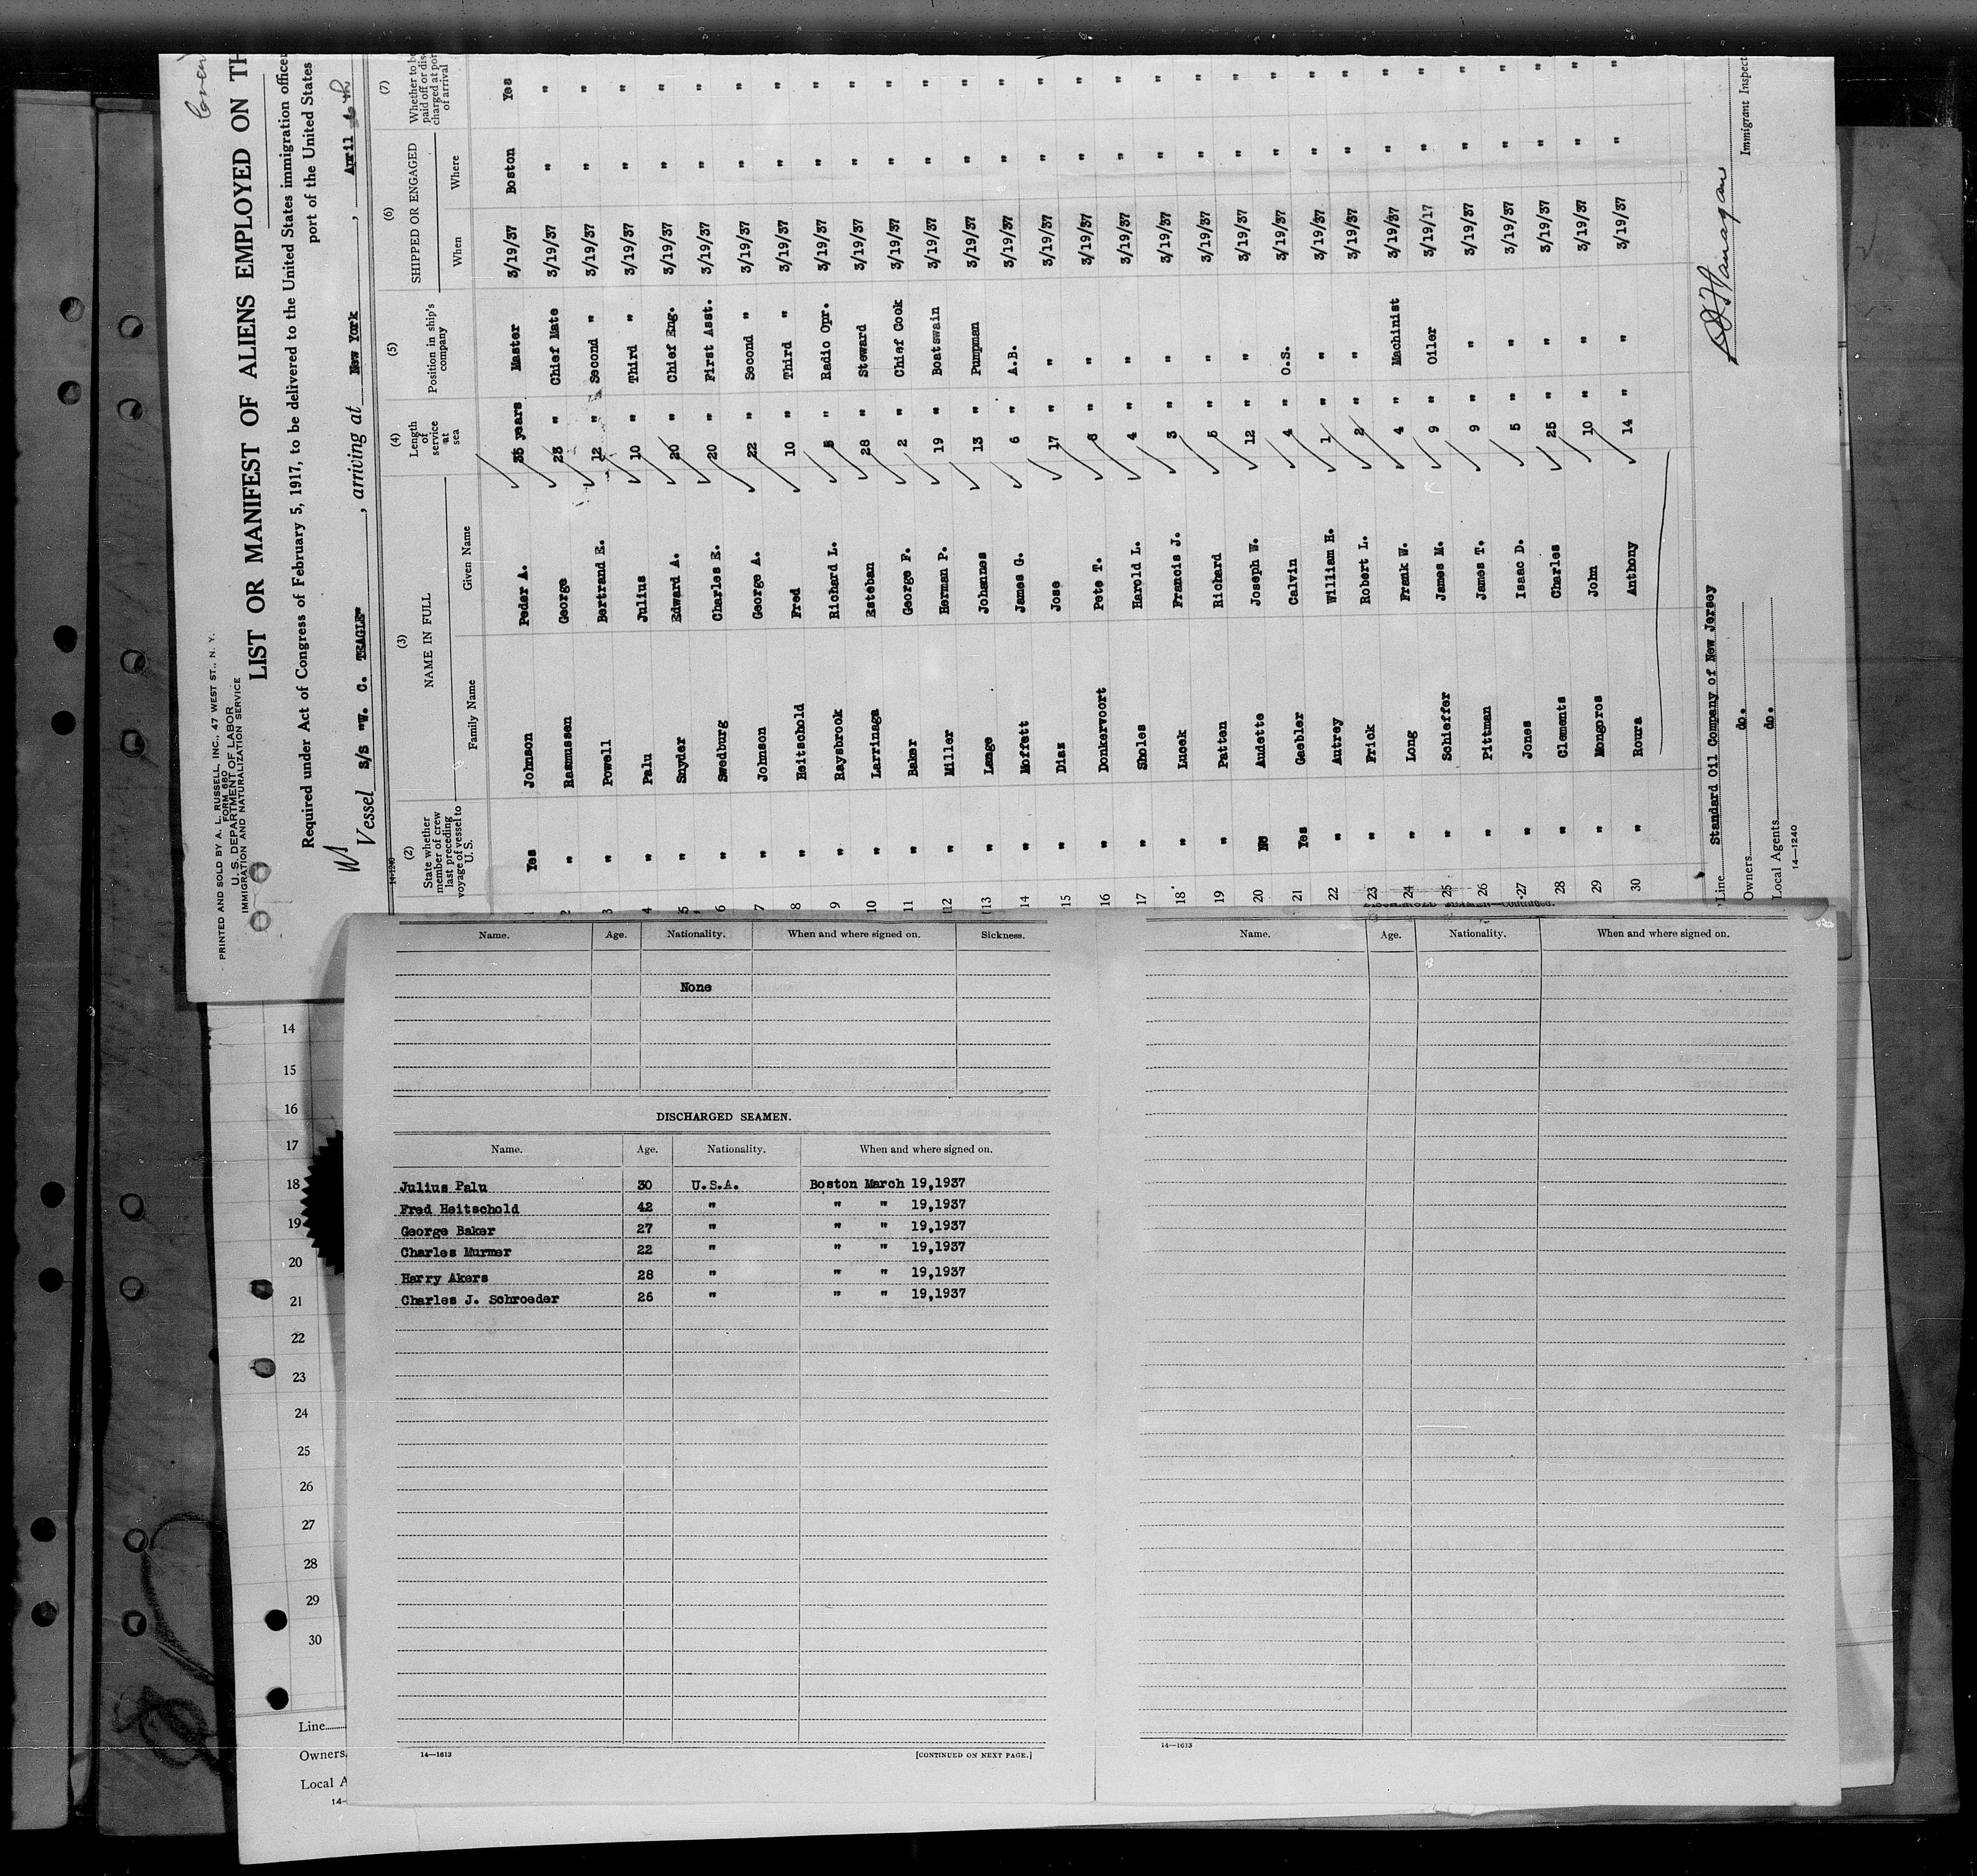 PRINTED AND SOLD BY A. L. RUSSELL, INC., 47 WEST ST., N. Y.
FORM 680
U. S. DEPARTMENT OF LABOR
IMMIGRATION AND NATURALIZATION SERVICE
LIST OR MANIFEST OF ALIENS EMPLOYED ON TH
Required under Act of Congress of February 5, 1917, to be delivered to the United States immigration officer
port of the United States
Vessel S/S "W. C. TEAGLE" , arriving at New York , April 6th
14-1240
(2) (3) (4) (5) (6) (7)
State whether member of crew last preceding voyage of vessel to U. S. NAME IN FULL Length of service at sea Position in ship's company SHIPPED OR ENGAGED Whether to be paid off or dis- charged at port of arrival
Family Name Given Name When Where
1 Yes Johnson Peder A. 35 years Master 3/19/37 Boston Yes
2 " Rasmussen George 23 " Chief Mate 3/19/37 " "
3 " Powell Bertrand E. 12 " Second " 3/19/37 " "
4 " Palu Julius 10 " Third " 3/19/37 " "
5 " Snyder Edward A. 20 " Chief Eng. 3/19/37 " "
6 " Swedburg Charles E. 20 " First Asst. 3/19/37 " "
7 " Johnson George A. 22 " Second " 3/19/37 " "
8 " Heitschold Fred 10 " Third " 3/19/37 " "
9 " Raysbrook Richard L. 5 " Radio Opr. 3/19/37 " "
10 " Larrinaga Esteban 28 " Steward 3/19/37 " "
11 " Baker George F. 2 " Chief Cook 3/19/37 " "
12 " Miller Herman P. 19 " Boatswain 3/19/37 " "
13 " Lange Johannes 13 " Pumpman 3/19/37 " "
14 " Moffett James G. 6 " A.B. 3/19/37 " "
15 " Diaz Jose 17 " " 3/19/37 " "
16 " Donkervoort Pete T. 6 " " 3/19/37 " "
17 " Sholes Harold L. 4 " " 3/19/37 " "
18 " Lucek Francis J. 3 " " 3/19/37 " "
19 " Patten Richard 5 " " 3/19/37 " "
20 No Audette Joseph W. 12 " " 3/19/37 " "
21 Yes Gaebler Calvin 4 " O.S. 3/19/37 " "
22 " Autrey William H. 1 " " 3/19/37 " "
23 " Frick Robert L. 2 " " 3/19/37 " "
24 " Long Frank W. 4 " Machinist 3/19/37 " "
25 " Schieffer James M. 9 " Oiler 3/19/17 " "
26 " Pittman James T. 9 " " 3/19/37 " "
27 " Jones Isaac D. 5 " " 3/19/37 " "
28 " Clements Charles 25 " " 3/19/37 " "
29 " Mongoros John 10 " " 3/19/37 " "
30 " Roura Anthony 14 " " 3/19/37 " "
Line Standard Oil Company of New Jersey
Owners do.
Local Agents do.
14—1240
Immigrant Inspect
Name. Age. Nationality. When and where signed on. Sickness.
None
DISCHARGED SEAMEN.
Name. Age. Nationality. When and where signed on.
Julius Palu 30 U.S.A. Boston March 19,1937
Fred Heitschold 42 " " " 19,1937
George Baker 27 " " " 19,1937
Charles Murmer 22 " " " 19,1937
Harry Akers 28 " " " 19,1937
Charles J. Schroeder 26 " " " 19,1937
14—1613 [CONTINUED ON NEXT PAGE.]
Name. Age. Nationality. When and where signed on.
14—1613
14
15
16
17
18
19
20
21
22
23
24
25
26
27
28
29
30
Line
Owners
Local A
14-